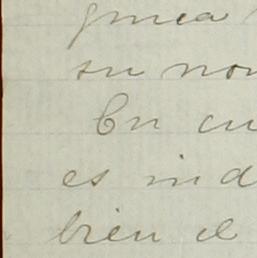 su no
En cu
es ind
bien el